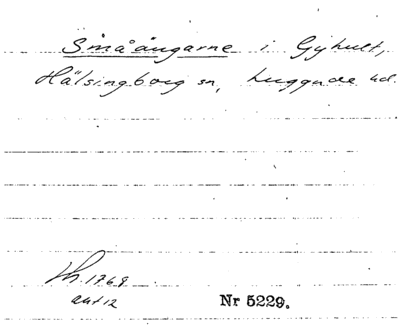 Småängarne i Gyhult,
Hälsingborg sn, Luggude hd.
Lh. 1769
akt 12 Nr 5229.